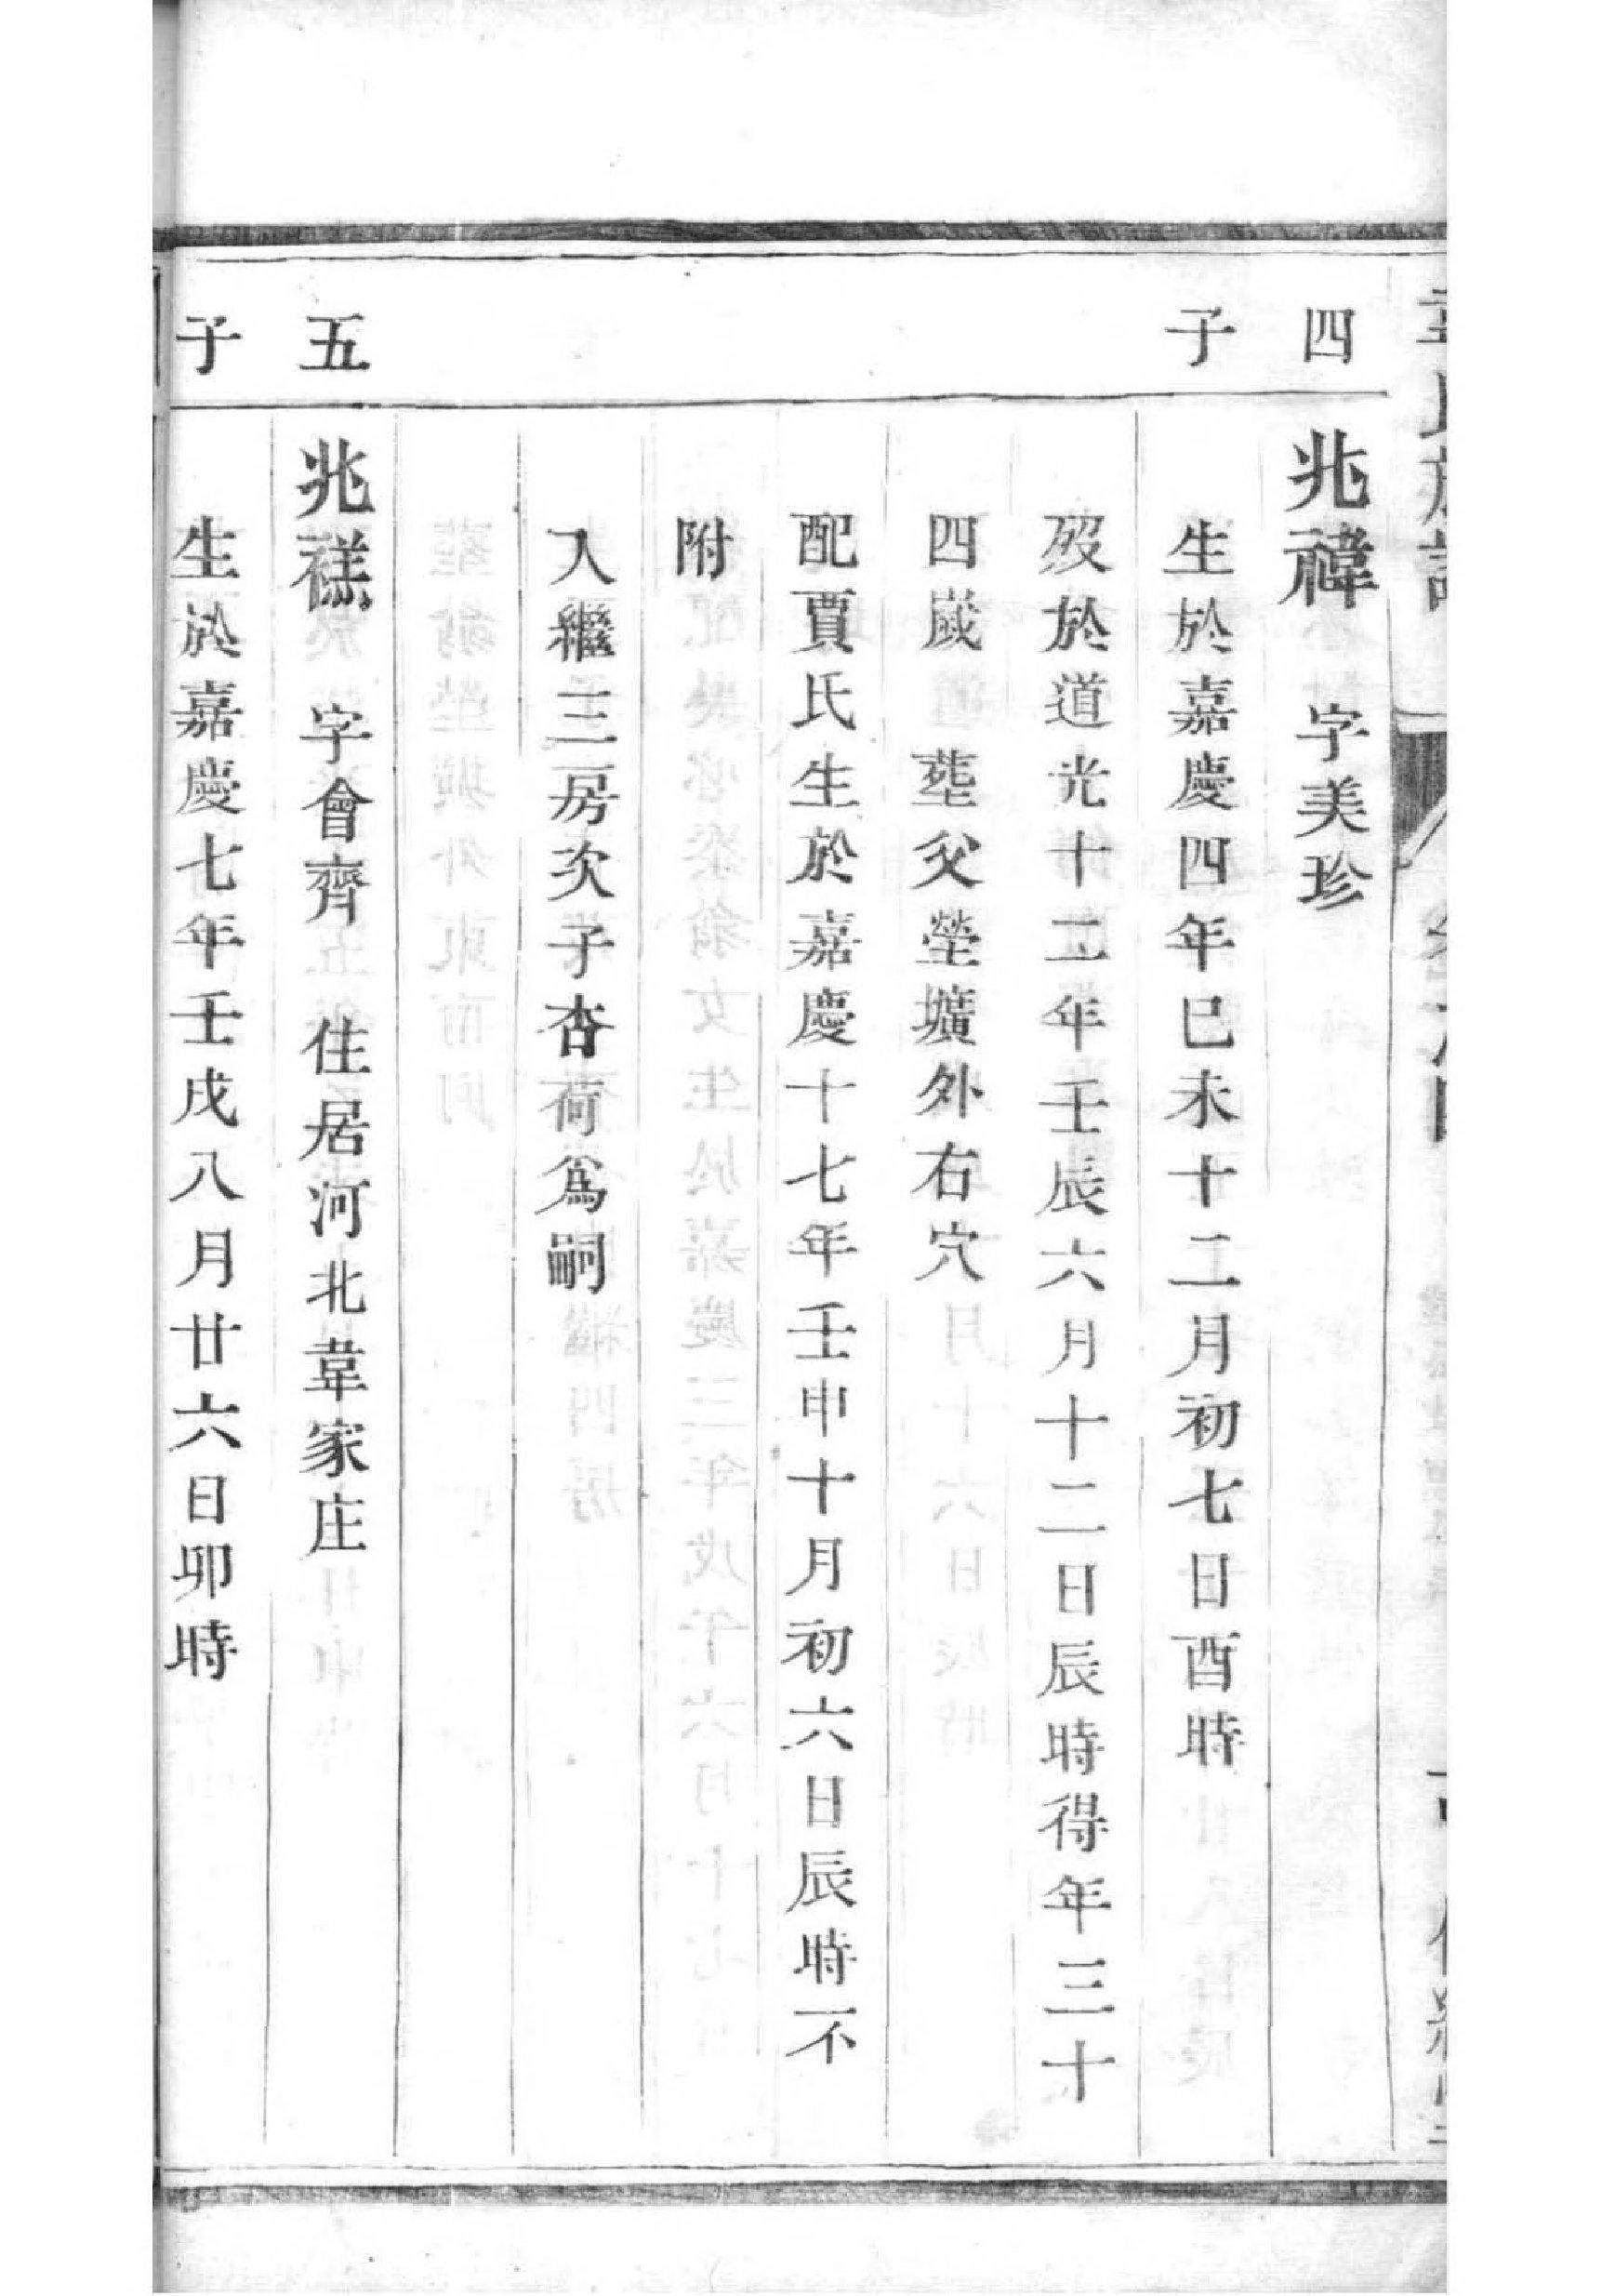 四子
兆禕 字美珍
生於嘉慶四年巳未十二月初七日酉時
歿於道光十二年壬辰六月十二日辰時得年三十
四嵗 塟父塋壙外右穴
配賈氏生於嘉慶十七年壬申十月初六日辰時不
附
入繼三房次子杏荷爲嗣
五子
兆禚 字會齊 住居河北韋家庄
生於嘉慶七年壬戌八月廿六日卯時